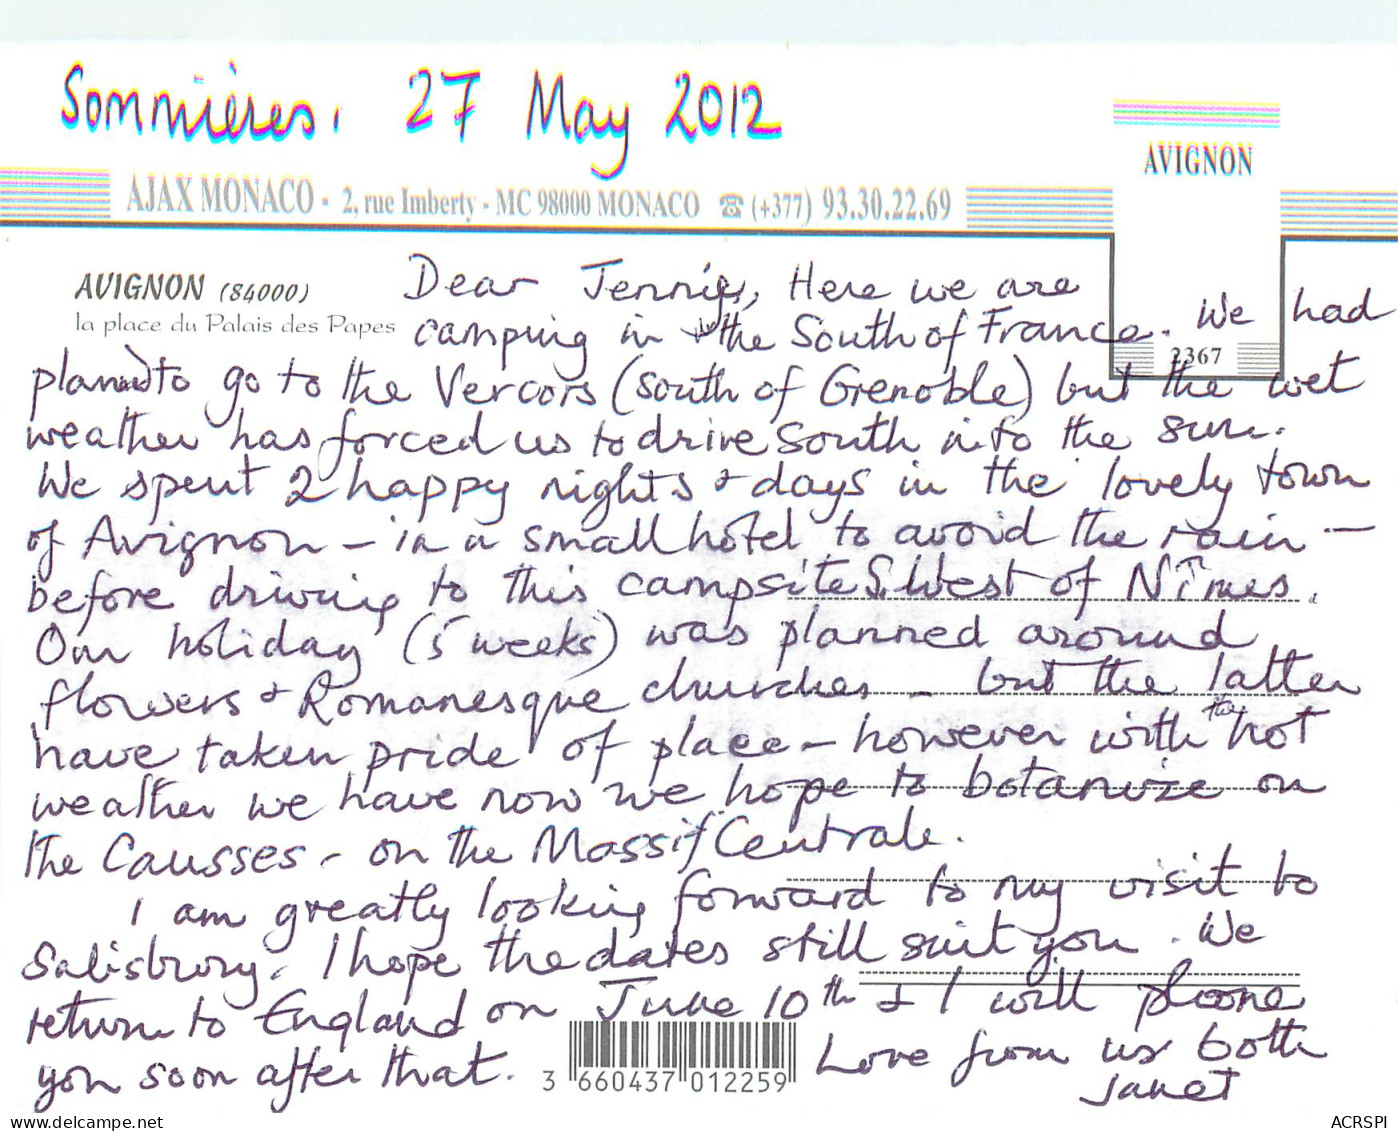 Sommières. 27 May 2012
AVIGNON
AJAX MONACO - 2, rue Imberty - MC 98000 MONACO ☎ (+377) 93.30.22.69
AVIGNON (84000)
la place du Palais des Papes
2367
Dear Jennie, Here we are
camping in the South of France. We had
planned to go to the Vercors (south of Grenoble) but the wet
weather has forced us to drive south into the sun.
We spent 2 happy nights & days in the lovely town
of Avignon - in a small hotel to avoid the rain -
before driving to this campsite S.West of Nîmes.
Our holiday (5 weeks) was planned around
flowers & Romanesque churches - but the latter
have taken pride of place - however with the hot
weather we have now we hope to botanize on
the Causses - on the Massif Centrale.
I am greatly looking forward to my visit to
Salisbury. I hope the dates still suit you. We
return to England on June 10th & I will phone
you soon after that. Love from us both
Janet
3 660437 012259
www.delcampe.net
ACRSPI